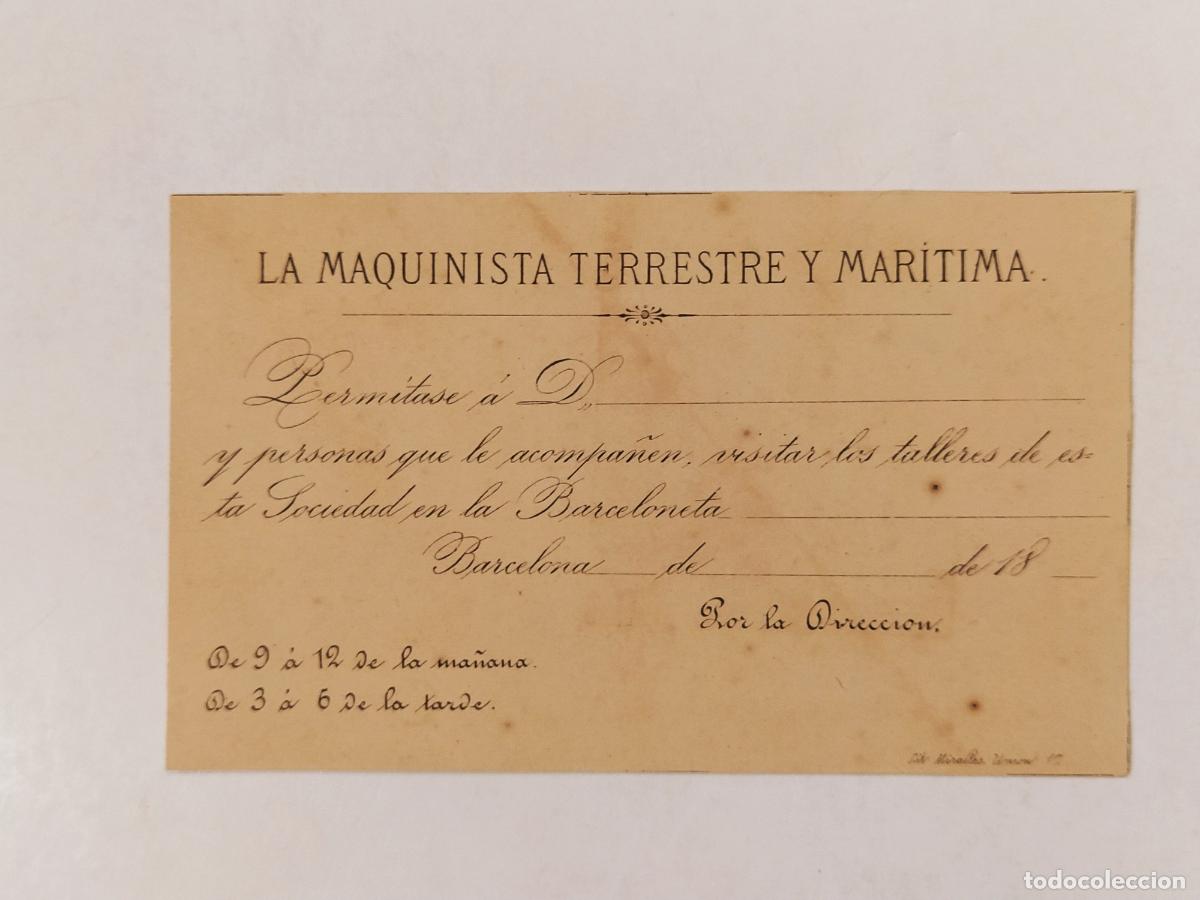 LA MAQUINISTA TERRESTRE Y MARÍTIMA.
Permítase á D.
y personas que le acompañen, visitar los talleres de es-
ta Sociedad en la Barceloneta
Barcelona de de 18
Por la Direccion.
De 9 á 12 de la mañana.
De 3 á 6 de la tarde.
Lit. Miralles, Union
todocoleccion